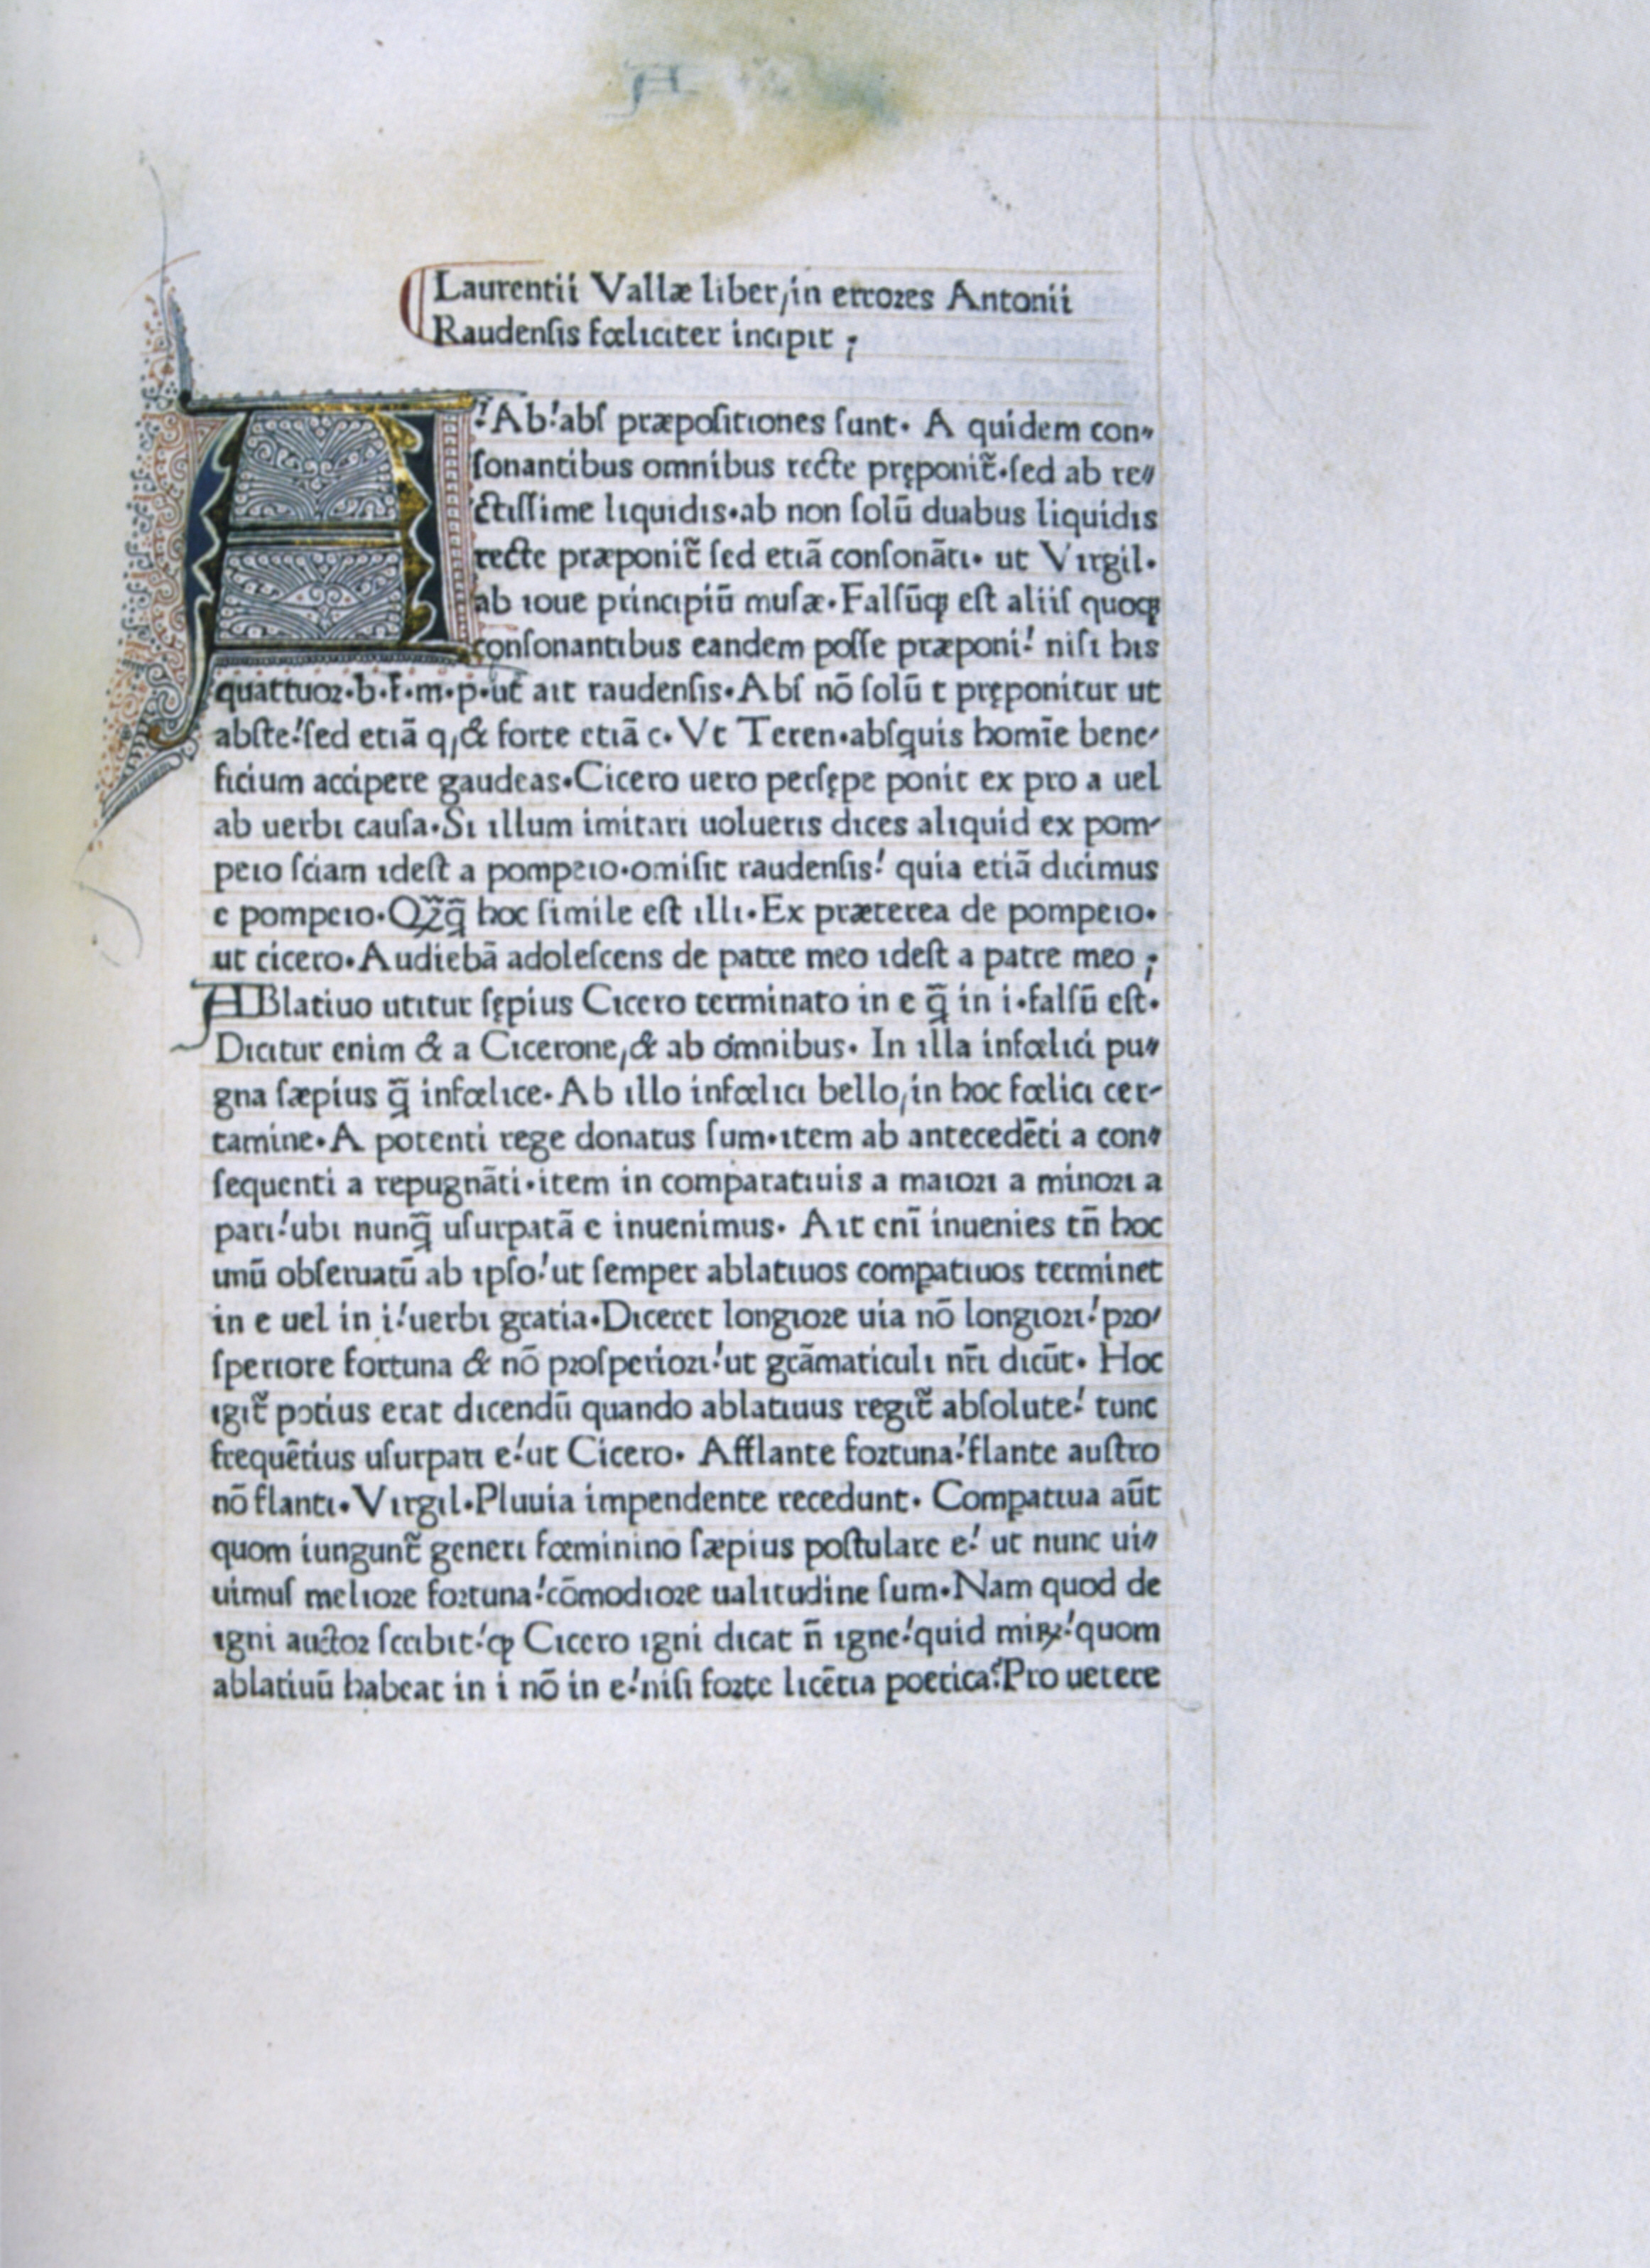 Laurentii Vallæ liber, in errores Antonii
Raudenſis fœliciter incipit ;
A!Ab!abſ præpoſitiones ſunt. A quidem con⸗
ſonantibus omnibus recte pręponit̃.ſed ab re⸗
ctiſſime liquidis.ab non ſolū duabus liquidis
recte præponit̃ ſed etiā conſonāti. ut Virgil.
ab ioue principiū muſæ.Falſūqꝫ eſt aliiſ quoqꝫ
conſonantibus eandem poſſe præponi! niſi his
quattuor.b.f.m.p.ut ait raudenſis.Abſ nō ſolū t pręponitur ut
abſte!ſed etiā q,& forte etiā c.Vt Teren.abſquis homīe bene⸗
ficium accipere gaudeas.Cicero uero perſępe ponit ex pro a uel
ab uerbi cauſa.Si illum imitari uolueris dices aliquid ex pom⸗
peio ſciam ideſt a pompeio.omiſit raudenſis! quia etiā dicimus
e pompeio. hoc ſimile eſt illi.Ex præterea de pompeio.
ut cicero.Audiebā adoleſcens de patre meo ideſt a patre meo ;
ABlatiuo utitur ſępius Cicero terminato in e q̄ in i.falſū eſt.
Dicitur enim & a Cicerone,& ab omnibus. In illa infœlici pu⸗
gna ſæpius q̄ infœlice.Ab illo infœlici bello,in hoc fœlici cer⸗
tamine.A potenti rege donatus ſum.item ab antecedēti a con⸗
ſequenti a repugnāti.item in comparatiuis a maiori a minori a
pari!ubi nunq̄ uſurpatā e inuenimus. Ait enī inuenies tn̄ hoc
unū obſeruatū ab ipſo!ut ſemper ablatiuos compatiuos terminet
in e uel in i!uerbi gratia.Diceret longiore uia nō longiori!pro⸗
ſperiore fortuna & nō proſperiori!ut grāmaticuli nr̄i dicūt. Hoc
igit̃ potius erat dicendū quando ablatiuus regit̃ abſolute! tunc
frequētius uſurpari e!ut Cicero. Afflante fortuna!flante auſtro
nō flanti.Virgil.Pluuia impendente recedunt. Compatiua aūt
quom iungunt̃ generi fœminino ſæpius poſtulare e! ut nunc ui⸗
uimuſ meliore fortuna!cōmodiore ualitudine ſum.Nam quod de
igni auctor ſcribit!ꝙ Cicero igni dicat n̄ igne!quid miꝝ!quom
ablatiuū habeat in i nō in e!niſi forte licētia poetica?Pro uetere